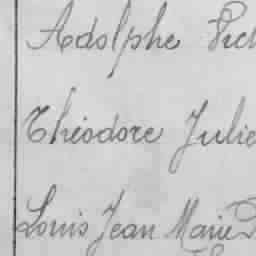 Adolphe
Théodore Julie
Louis Jean Marie